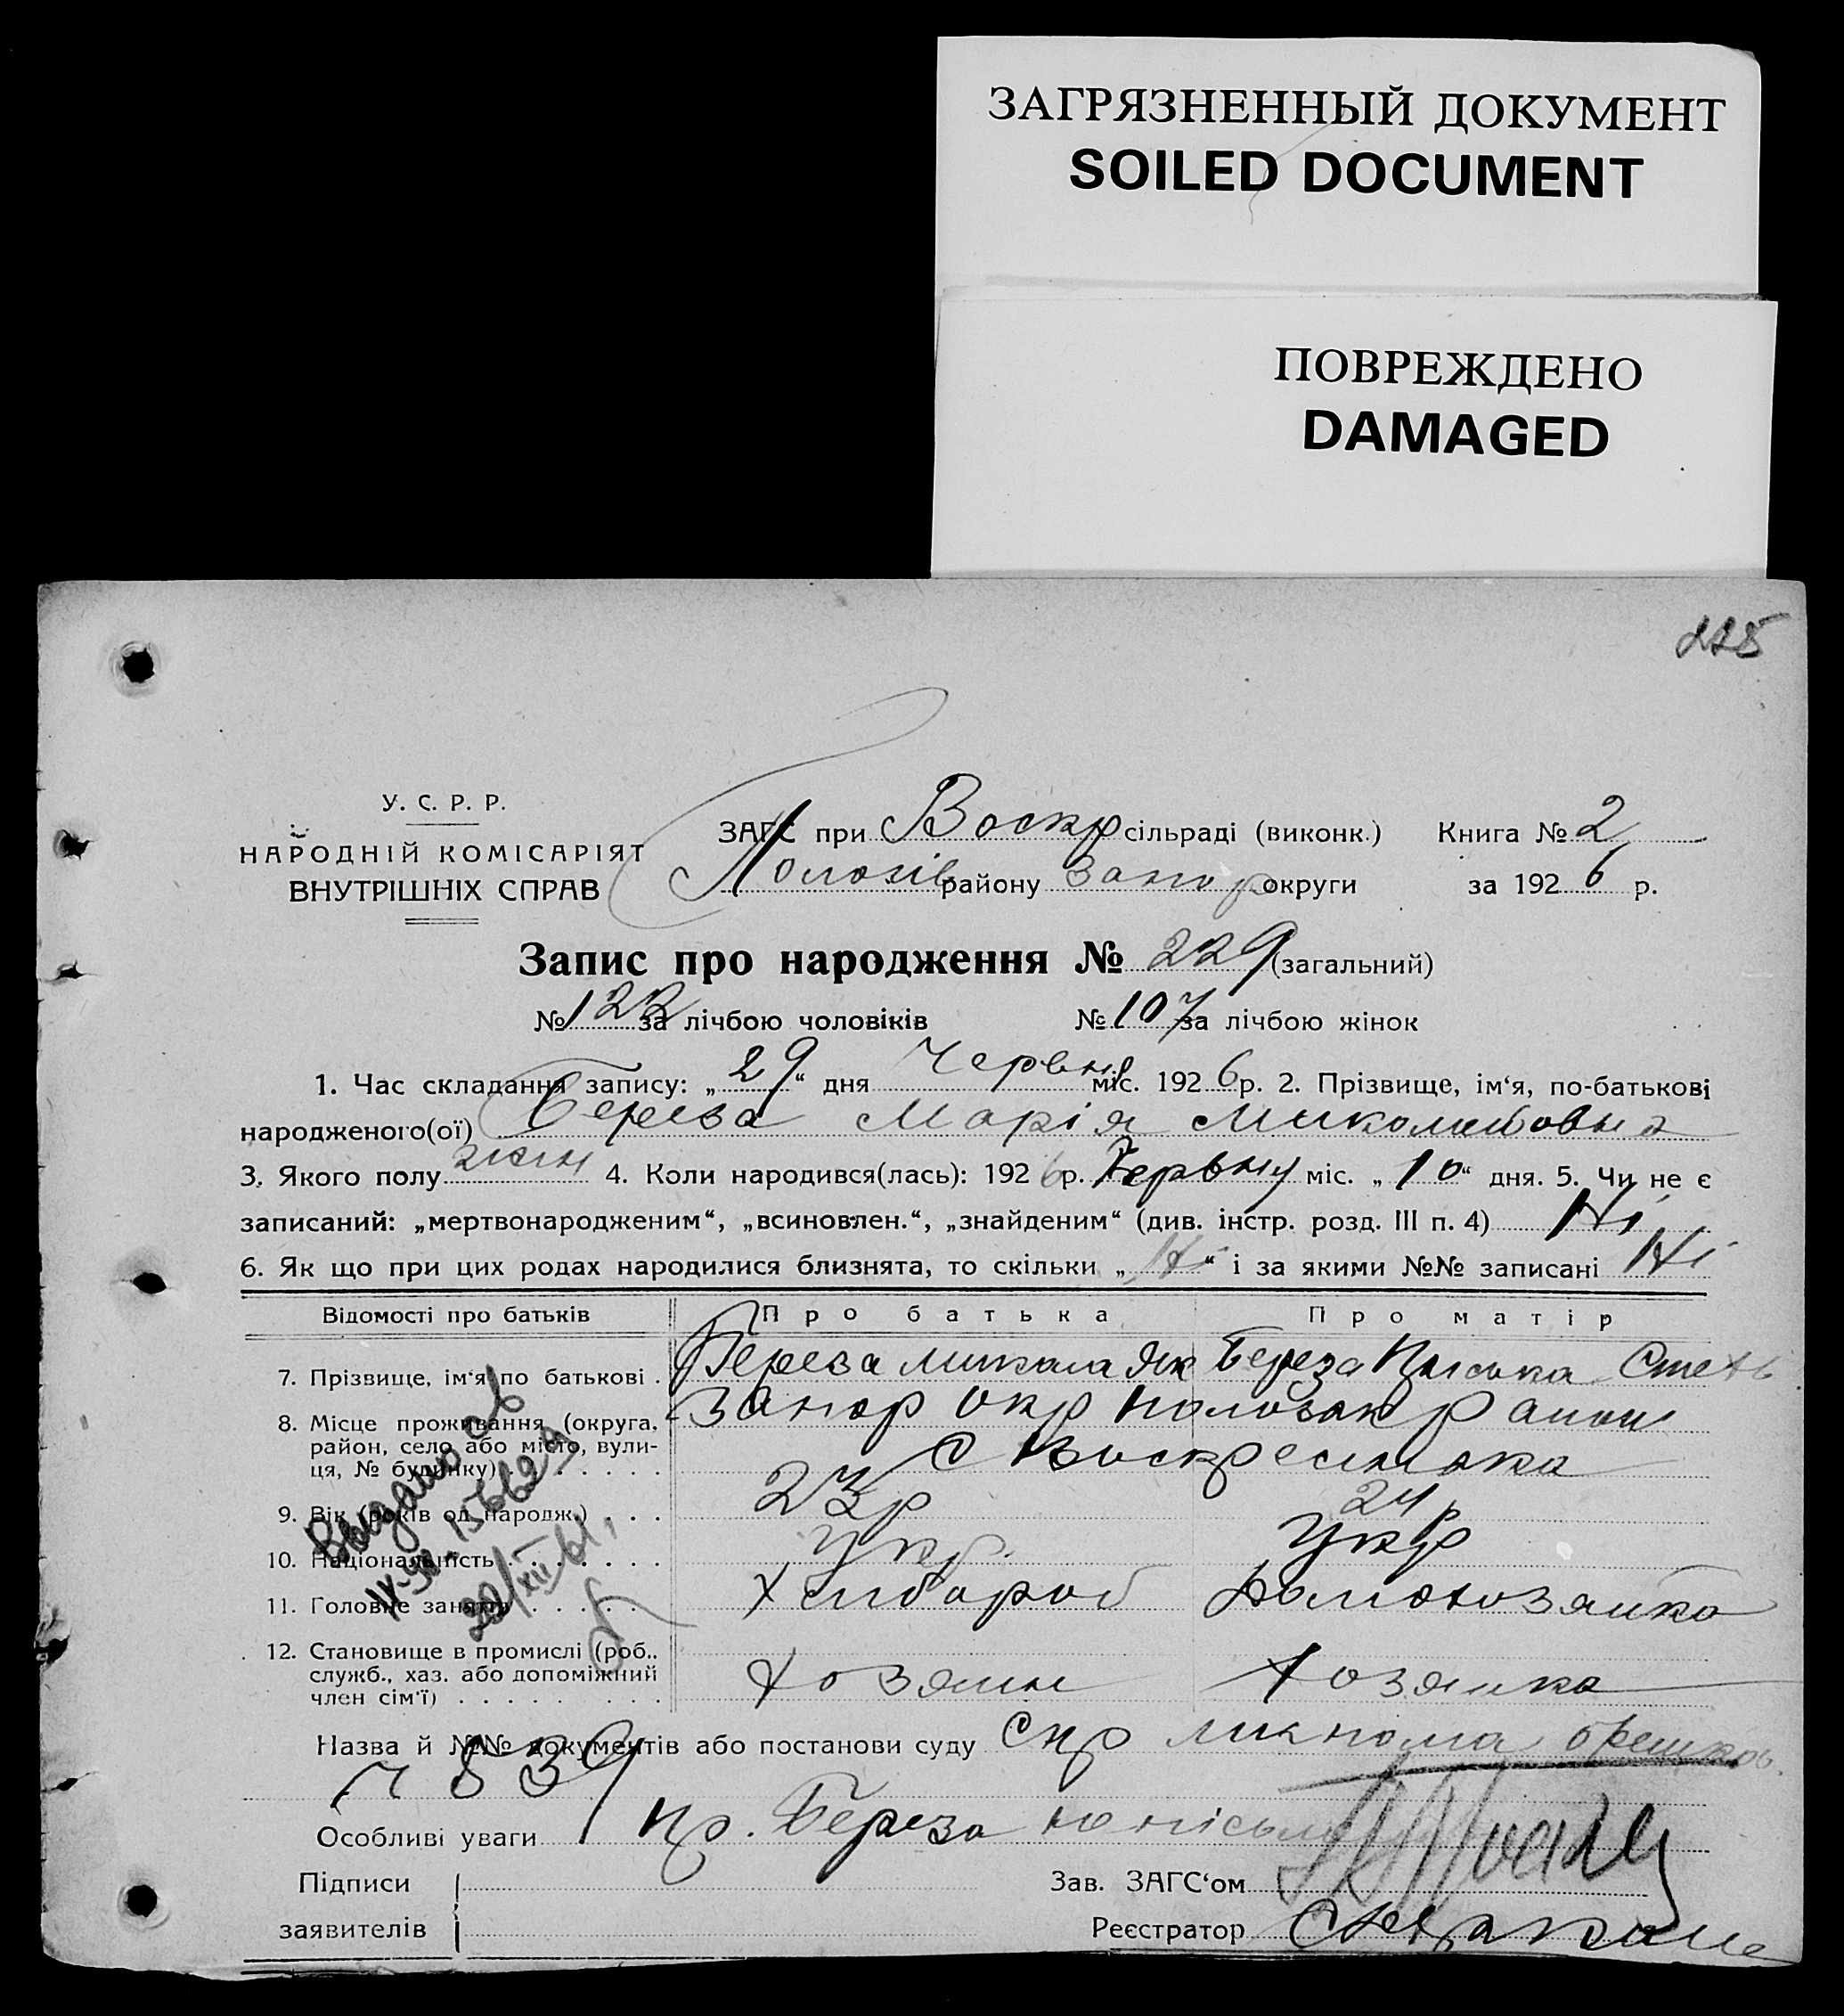 ЗАГРЯЗНЕННЫЙ ДОКУМЕНТ
SOILED DOCUMENT
ПОВРЕЖДЕНО
DAMAGED
225
У. С. Р. Р.
НАРОДНІЙ КОМІСАРІЯТ
ВНУТРІШНІХ СПРАВ
ЗАГС при Воскр сільраді (виконк.) Книга № 2
Пологів району Запор округи за 1926 р.
Запис про народження № 229 (загальний)
№ 122 за лічбою чоловіків № 107 за лічбою жінок
1. Час складання запису: „29“ дня Червня міс. 1926 р. 2. Прізвище, ім‘я, по-батькові
народженого(ої) Береза Марія Миколаєвна
3. Якого полу жін 4. Коли народився(лась): 1926 р. Червня міс. „10“ дня. 5. Чи не є
записаний: „мертвонародженим“, „всиновлен.“, „знайденим“ (див. інстр. розд. III п. 4) Ні
6. Як що при цих родах народилися близнята, то скільки „Ні“ і за якими №№ записані Ні
Відомості про батьків Про батька Про матір
7. Прізвище, ім‘я по батькові . Береза Микола Як Береза Степ
8. Місце проживання (округа, Запор окр район
район, село або місто, вули-
ця, № будинку) . . . . . . с Воскресенка
9. Вік (років од народж.) . . . 23 р 24 р
10. Національність . . . . . . . Укр. Укр
11. Головне заняття . . . . . . Хлібороб Домохозяйка
12. Становище в промислі (роб..
служб., хаз. або допоміжний Хозяин Хозяйка
член сім‘ї) . . . . . . . . .
Видано
20/XII 61.
Назва й №№ документів або постанови суду Спр
839
Особливі уваги пр. Береза
Підписи Зав. ЗАГС‘ом
заявителів Реєстратор